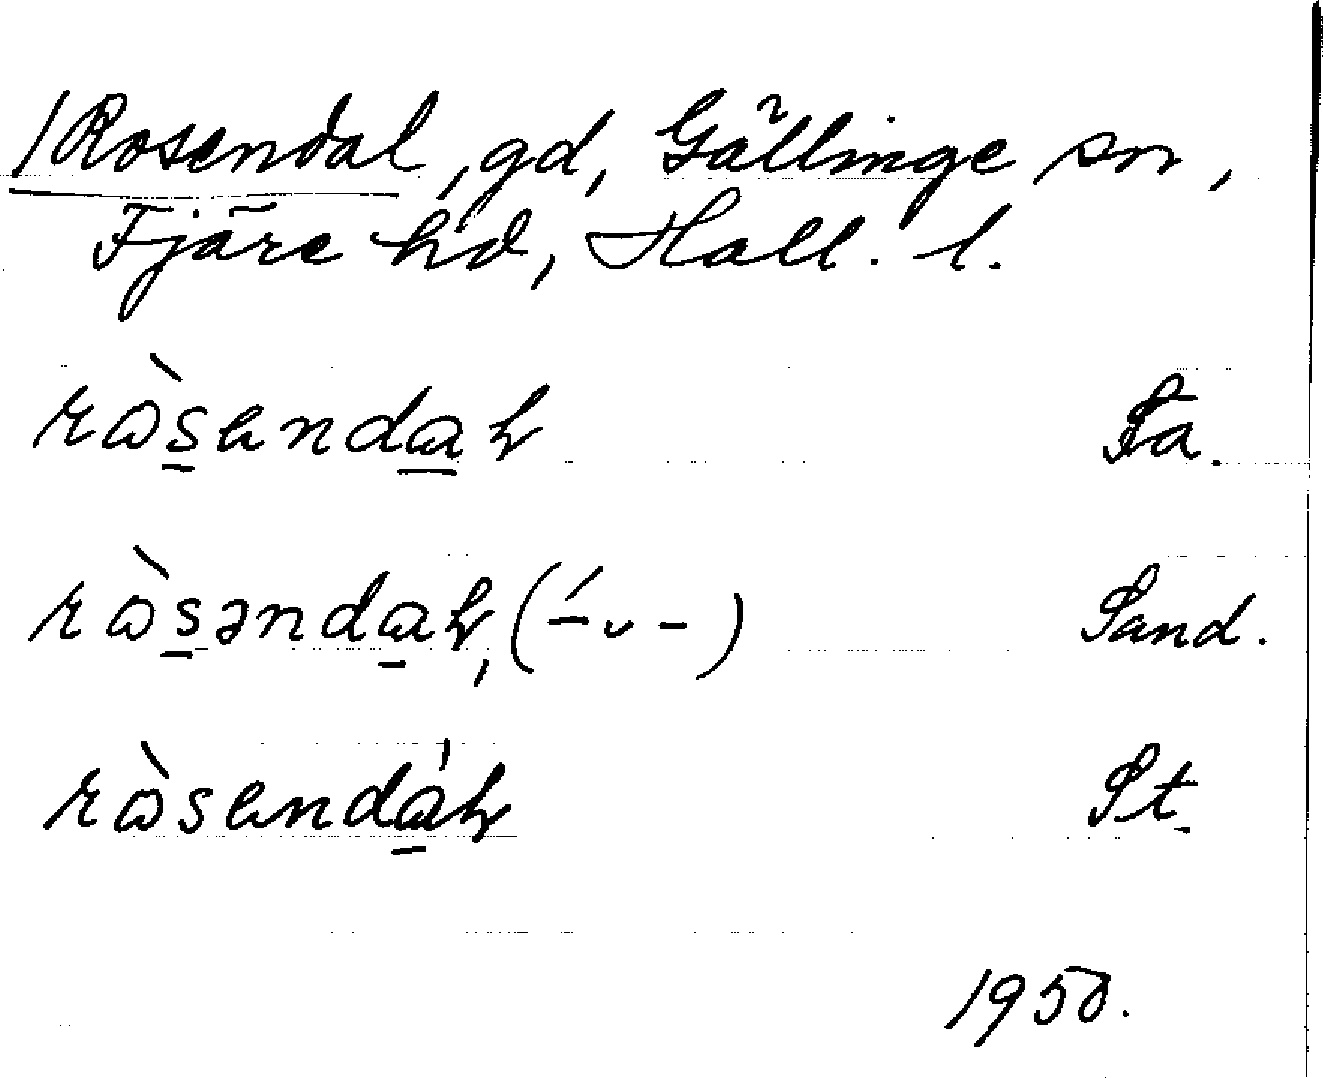 /Rosendal, gd, Gällinge sn,
Fjäre hd, Hall. l.
ròsandaɫ Fa.
ròsəndaɫ, (-́ ᴗ -) Sand.
ròsendáɫ St.
1950.